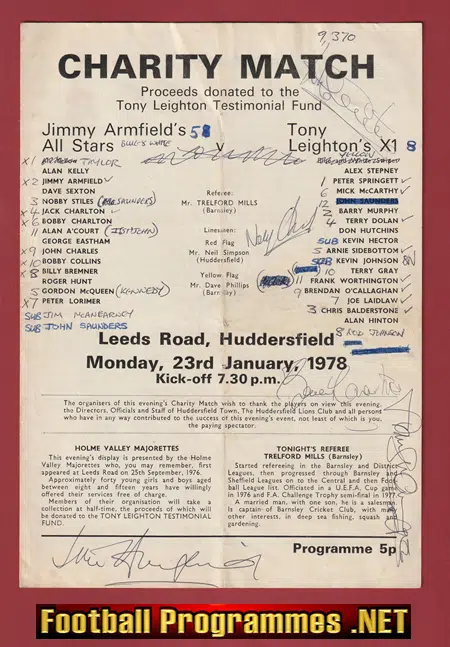 9,370
CHARITY MATCH
Proceeds donated to the
Tony Leighton Testimonial Fund
Jimmy Armfield's 5
All Stars BLUE & WHITE
v
Tony
Leighton's X1 8
YELLOW
X1 TAYLOR
ALAN KELLY
X2 JIMMY ARMFIELD
DAVE SEXTON
3 NOBBY STILES (SAUNDERS)
X4 JACK CHARLTON
X6 BOBBY CHARLTON
11 ALAN A'COURT (1ST JOHN)
GEORGE EASTHAM
X9 JOHN CHARLES
X10 BOBBY COLLINS
X8 BILLY BREMNER
ROGER HUNT
5 GORDON McQUEEN (KENNEDY)
X7 PETER LORIMER
SUB JIM McANEARNEY
SUB JOHN SAUNDERS
Referee:
Mr. TRELFORD MILLS
(Barnsley)
Linesmen:
Red Flag
Mr. Neil Simpson
(Huddersfield)
Yellow Flag
Mr. Dave Phillips
(Barnsley)
ALEX STEPNEY
1 PETER SPRINGETT
6 MICK McCARTHY
12 JOHN SAUNDERS
2 BARRY MURPHY
4 TERRY DOLAN
DON HUTCHINS
SUB KEVIN HECTOR
5 ARNIE SIDEBOTTOM
SUB KEVIN JOHNSON
10 TERRY GRAY
11 FRANK WORTHINGTON
9 BRENDAN O'CALLAGHAN
7 JOE LAIDLAW
3 CHRIS BALDERSTONE
ALAN HINTON
8 ROD JOHNSON
Leeds Road, Huddersfield
Monday, 23rd January, 1978
Kick-off 7.30 p.m.
The organisers of this evening's Charity Match wish to thank the players on view this evening,
the Directors, Officials and Staff of Huddersfield Town, The Huddersfield Lions Club and all persons
who have in any way contributed to the success of this evening's event, not least of which is you,
the paying spectator.
HOLME VALLEY MAJORETTES
This evening's display is presented by the Holme
Valley Majorettes who, you may remember, first
appeared at Leeds Road on 25th September, 1976.
Approximately forty young girls and boys aged
between eight and fifteen years have willingly
offered their services free of charge.
Members of their organisation will take a
collection at half-time, the proceeds of which will
be donated to the TONY LEIGHTON TESTIMONIAL
FUND.
TONIGHT'S REFEREE
TRELFORD MILLS (Barnsley)
Started refereeing in the Barnsley and District
Leagues, then progressed through Barnsley and
Sheffield Leagues on to the Central and then Foot
ball League list. Officiated in a U.E.F.A. Cup game
in 1976 and F.A. Challenge Trophy semi-final in 1977.
A married man, with one son, he is a salesman
is captain of Barnsley Cricket Club, with
other interests, in deep sea fishing, squash and
gardening.
Programme 5p
Football Programmes .NET